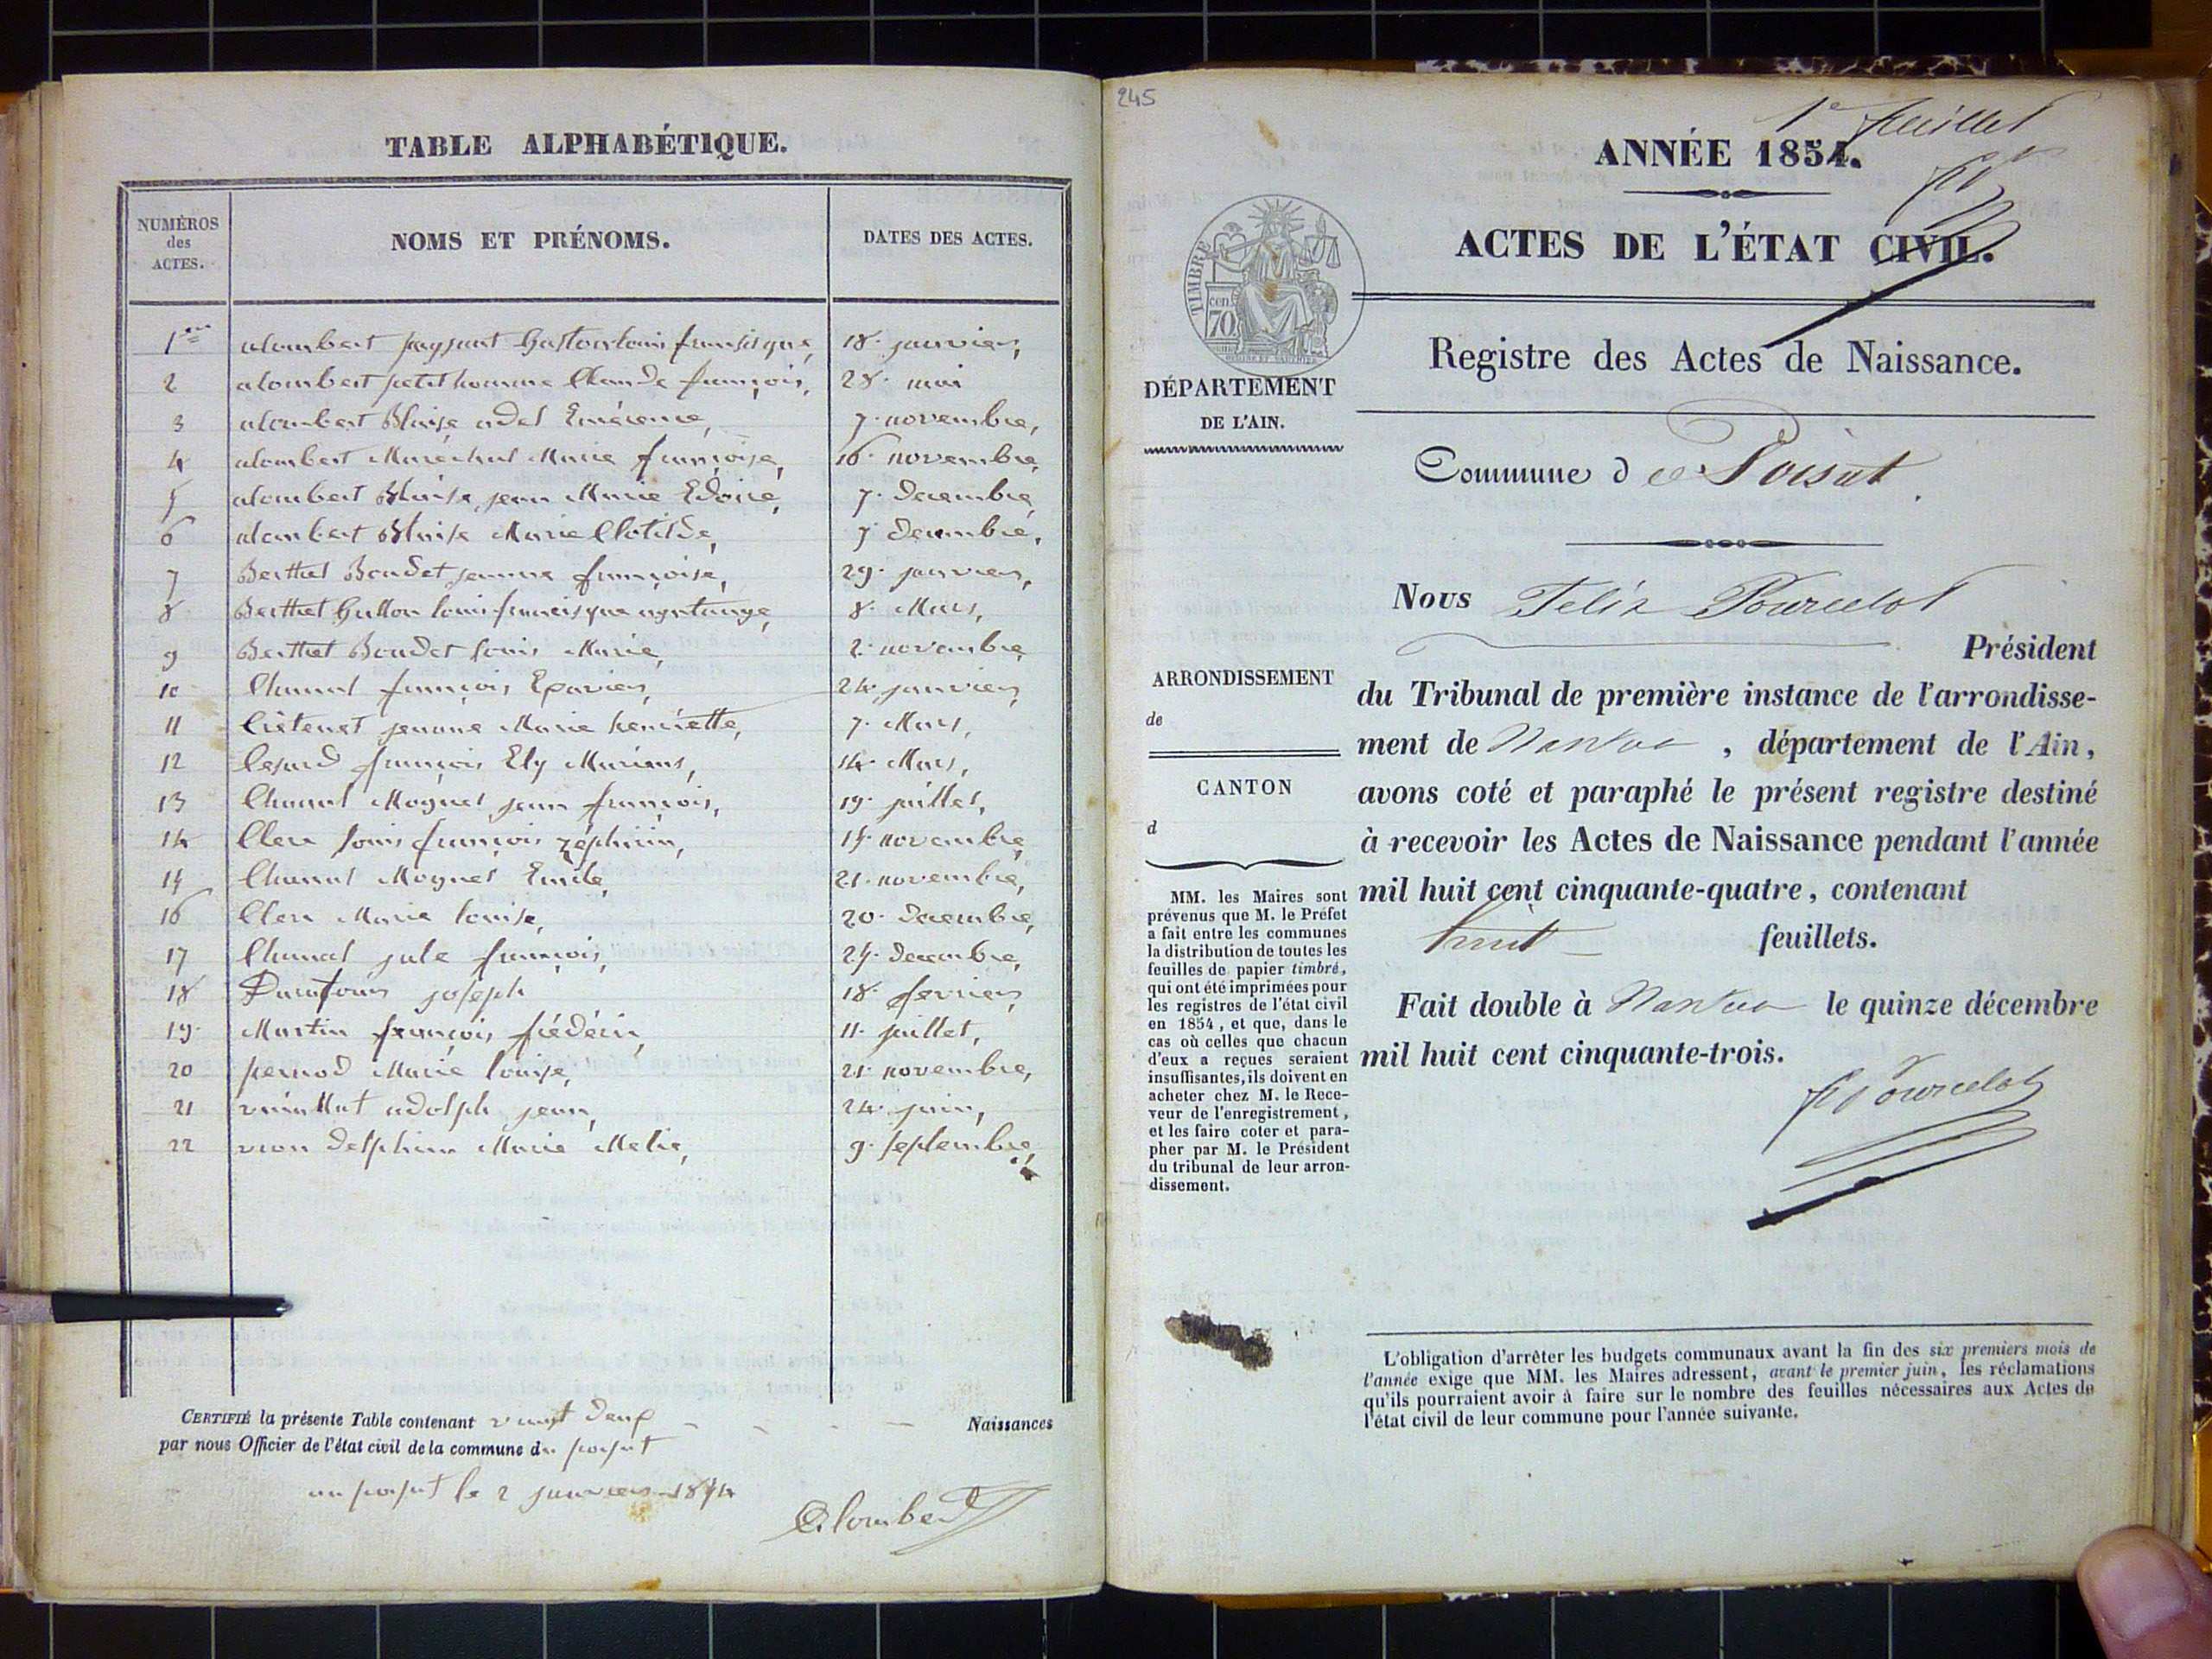 TABLE ALPHABÉTIQUE.
NUMÉROS des ACTES. NOMS ET PRÉNOMS. DATES DES ACTES.
1er alombert paysant Gaston louis fransisque, 18. janvier,
2 alombert petit homme Claude françois, 28. mai
3 alombert Blaise adel Emérence, 7. novembre,
4 alombert Maréchal Marie françoise, 16. novembre,
5 alombert Blaise, jean Marie Edoire, 7. decembre,
6 alombert Blaise Marie Clotilde, 7 decembre,
7 Berthet Boudet jeanne françoise, 29. janvier,
8 Berthet Gutton louis francisque 8. Mars,
9 Berthet Boudet louis Marie, 2. novembre,
10 Chanal françois Epavier, 24. janvier,
11 Crétenet jeanne Marie henriette, 7. Mars,
12 Cesard françois Ely Marius, 14. Mars,
13 Chanal Mognet jean françois, 19. juillet,
14 Clerc louis françois zéphirin, 15. novembre,
15 Chanal Mognet Emile, 21. novembre,
16 Clerc Marie louise, 20. decembre,
17 Chanal jule françois, 25. decembre,
18 Durafour joseph 18. fevrier,
19. Martin françois fréderic, 11. juillet,
20 pernod Marie louise, 21. novembre,
21 adolph jean, 24. juin,
22 vion delphine Marie Melie, 9. septembre,
CERTIFIÉ la présente Table contenant vingt deux Naissances
par nous Officier de l'état civil de la commune de poisat
au poisat le 2 janvier 1854
Alombert
245
1er feuillet
ANNÉE 1854.
ACTES DE L'ÉTAT CIVIL.
TIMBRE
70 cen
DÉPARTEMENT
DE L'AIN.
Registre des Actes de Naissance.
Commune de Poisat
Nous Felix Pourcelot
Président
du Tribunal de première instance de l'arrondisse-
ment de Nantua, département de l'Ain,
avons coté et paraphé le présent registre destiné
à recevoir les Actes de Naissance pendant l'année
mil huit cent cinquante-quatre, contenant
huit feuillets.
Fait double à Nantua le quinze décembre
mil huit cent cinquante-trois.
F Pourcelot
ARRONDISSEMENT
de
CANTON
d
MM. les Maires sont
prévenus que M. le Préfet
a fait entre les communes
la distribution de toutes les
feuilles de papier timbré,
qui ont été imprimées pour
les registres de l'état civil
en 1854, et que, dans le
cas où celles que chacun
d'eux a reçues seraient
insuffisantes, ils doivent en
acheter chez M. le Rece-
veur de l'enregistrement,
et les faire coter et para-
pher par M. le Président
du tribunal de leur arron-
dissement.
L'obligation d'arrêter les budgets communaux avant la fin des six premiers mois de
l'année exige que MM. les Maires adressent, avant le premier juin, les réclamations
qu'ils pourraient avoir à faire sur le nombre des feuilles nécessaires aux Actes de
l'état civil de leur commune pour l'année suivante.